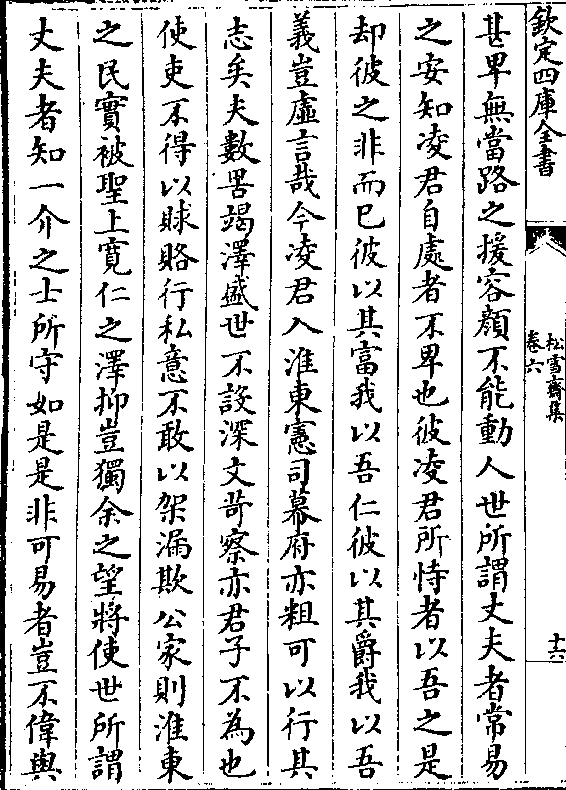 欽定四庫全書
松雪齋集
卷六
十六
甚卑無當路之援容顔不能動人世所謂丈夫者常易
之安知凌君自處者不卑也彼凌君所恃者以吾之是
却彼之非而已彼以其富我以吾仁彼以其爵我以吾
義豈虛言哉今凌君入淮東憲司幕府亦粗可以行其
志矣夫數罟竭澤盛世不設深文苛察亦君子不為也
使吏不得以賕賂行私意不敢以架漏欺公家則淮東
之民實被聖上寛仁之澤抑豈獨余之望將使世所謂
丈夫者知一介之士所守如是是非可易者豈不偉與